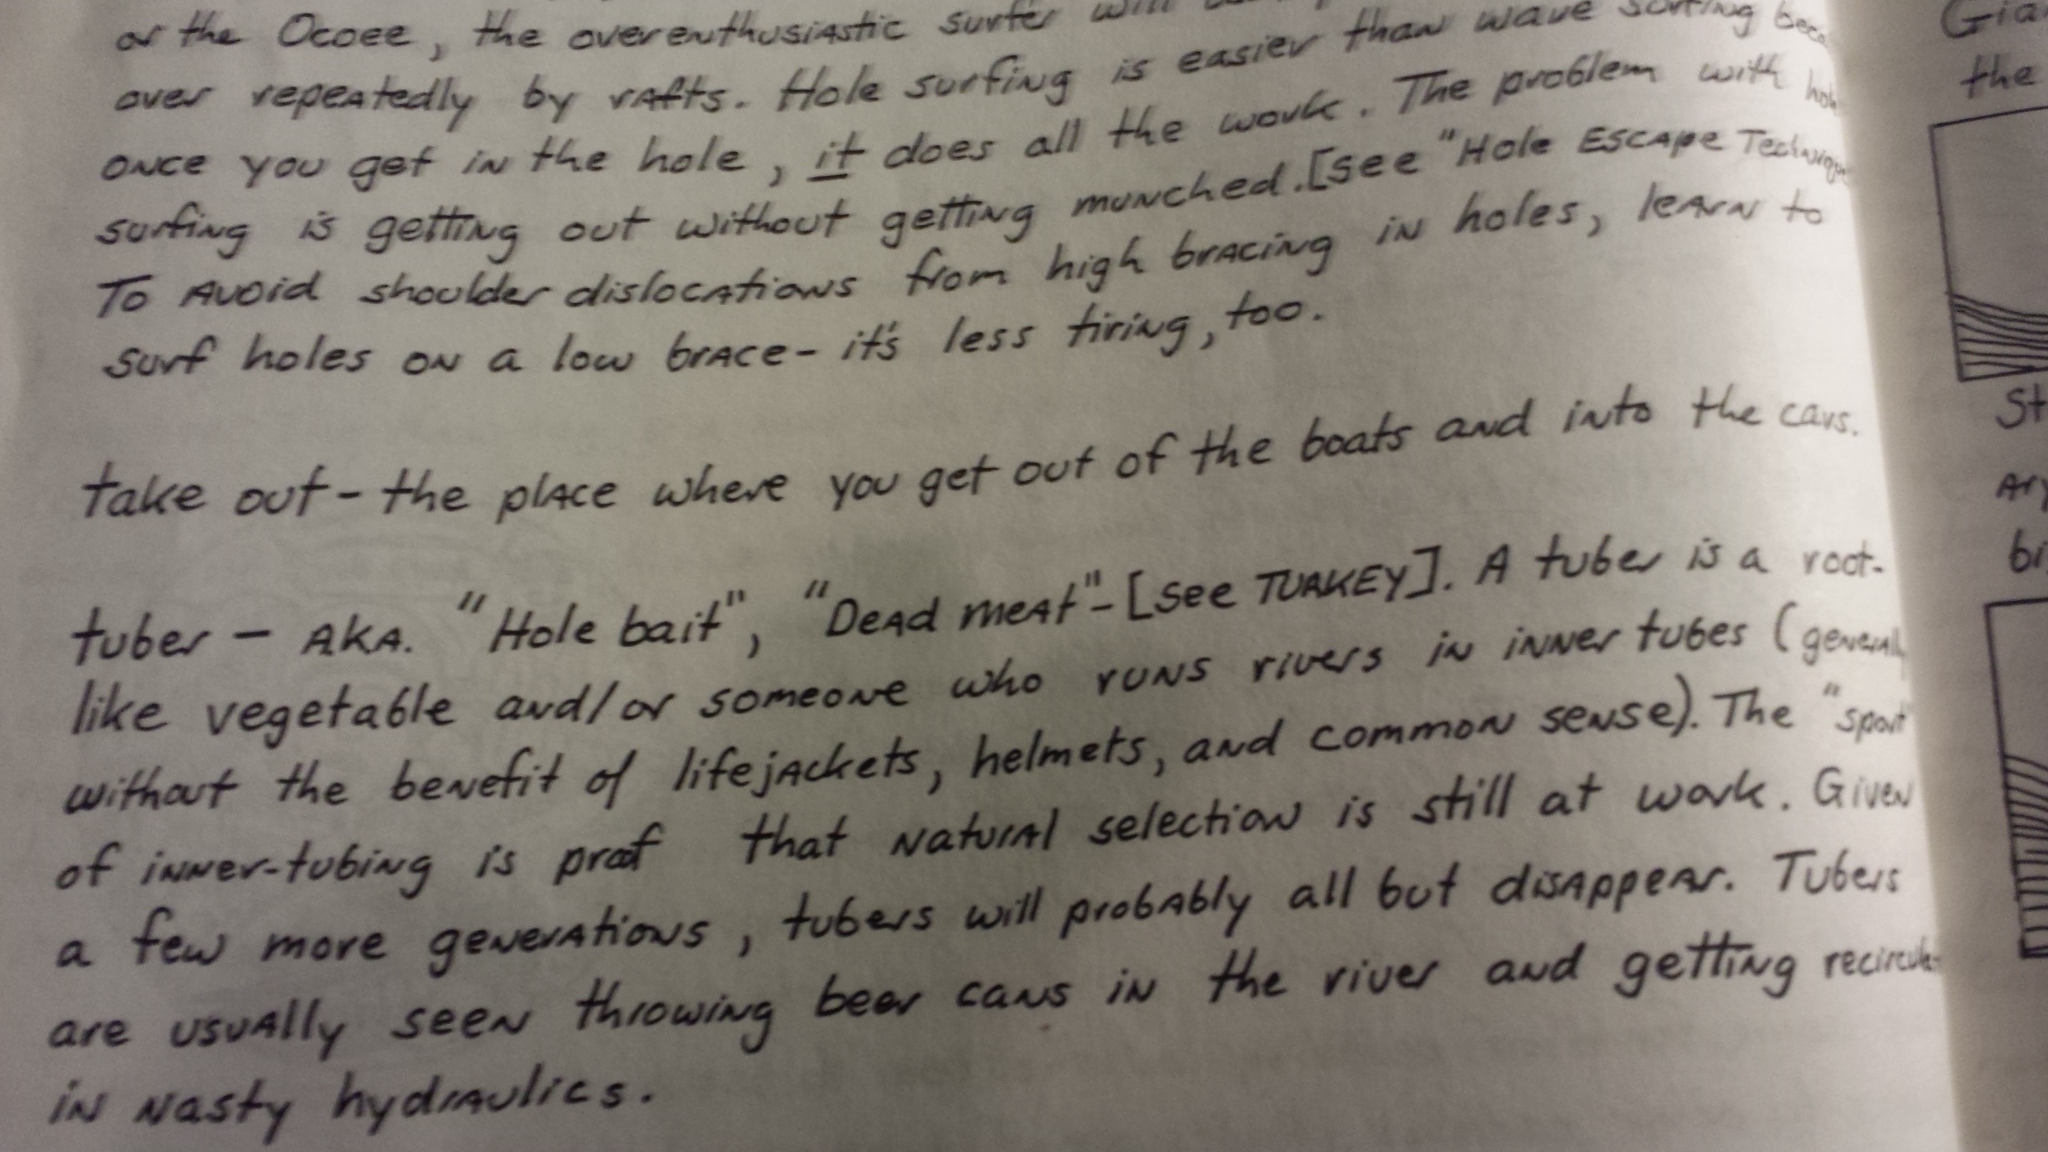 or the Ocoee, the overenthusiastic surfer will
over repeatedly by rafts. Hole surfing is easier than wave surfing
once you get in the hole, it does all the work. The problem with
surfing is getting out without getting munched. [see "Hole Escape
To avoid shoulder dislocations from high bracing in holes, learn to
surf holes on a low brace - it's less tiring, too.
take out - the place where you get out of the boats and into the cars.
tuber - AKA. "Hole bait", "Dead meat" - [see TURKEY]. A tuber is a root-
like vegetable and/or someone who runs rivers in inner tubes (generally
without the benefit of lifejackets, helmets, and common sense). The "sport"
of inner-tubing is proof that natural selection is still at work. Given
a few more generations, tubers will probably all but disappear. Tubers
are usually seen throwing beer cans in the river and getting
in nasty hydraulics.
the